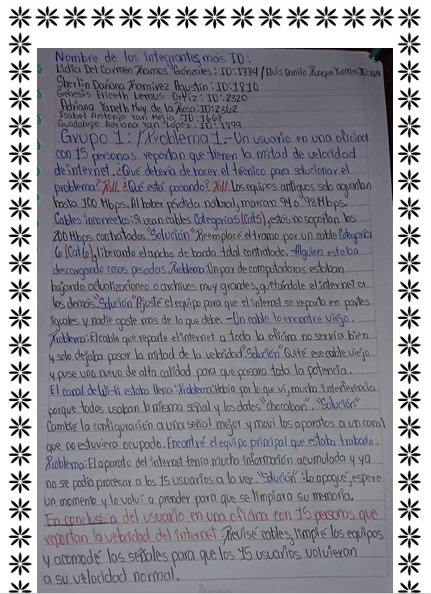 Nombre de los integrantes, mas ID:
Lidia Del Carmen Ramos Gonzales: ID:1784 / Elvis Danilo
Sherlin Dariana Ramírez Agustin: ID:1810
Génesis Elizeth Lemus Ortiz: ID:2320
Adriana Yaneth Muy de la Rosa: ID:2362
Isabel Antonia Yan Mejía ID:1668
Guadalupe Adriana Yan López: ID:1779
Grupo 1: / Problema 1.-Un usuario en una oficina
con 15 personas reportan que tienen la mitad de velocidad
de internet, ¿Que debería de hacer el técnico para solucionar el
problema? Kill ¿Qué está pasando? Kill. Los equipos antiguos solo aguantan
hasta 100 Mbps. Al haber pérdida natural, marcan 94 o 98 Mbps.
Cables incorrectos: Si usan cables Categorias (Cat5), estos no soportan los
200 Mbps contratados. "Solución" Reemplacé el tramo por un cable Categoría
6 (Cat6), liberando el ancho de banda total contratado. -Alguien estaba
descargando cosas pesadas. Problema: Un par de computadoras estaban
bajando actualizaciones o archivos muy grandes, quitándole el internet a
los demás. "Solución" Ajusté el equipo para que el internet se reparta en partes
iguales y nadie gaste más de lo que debe. -Un cable lo encontre viejo.
Problema: El cable que reparte el internet a toda la oficina no servía bien
y solo dejaba pasar la mitad de la velocidad "Solución" Quité ese cable viejo
y puse uno nuevo de alta calidad para que pasara toda la potencia.
El canal de Wi-fi estaba lleno: Problema: Había por lo que vi, mucha interferencia
porque todos usaban la misma señal y los datos "chocaban". "Solución"
Cambié la configuración a una señal mejor y moví los aparatos a un canal
que no estuviera ocupado. Encontré el equipo principal que estaba trabado.
Problema: El aparato del internet tenía mucha información acumulada y ya
no se podía procesar a los 15 usuarios a la vez. "Solución": Lo apagué, esperé
un momento y lo volví a prender para que se limpiara su memoria.
En conclusión del usuario en una oficina con 15 personas que
reportan la velocidad del internet. Revisé cables, limpié los equipos
y acomodé las señales para que los 15 usuarios volvieran
a su velocidad normal.